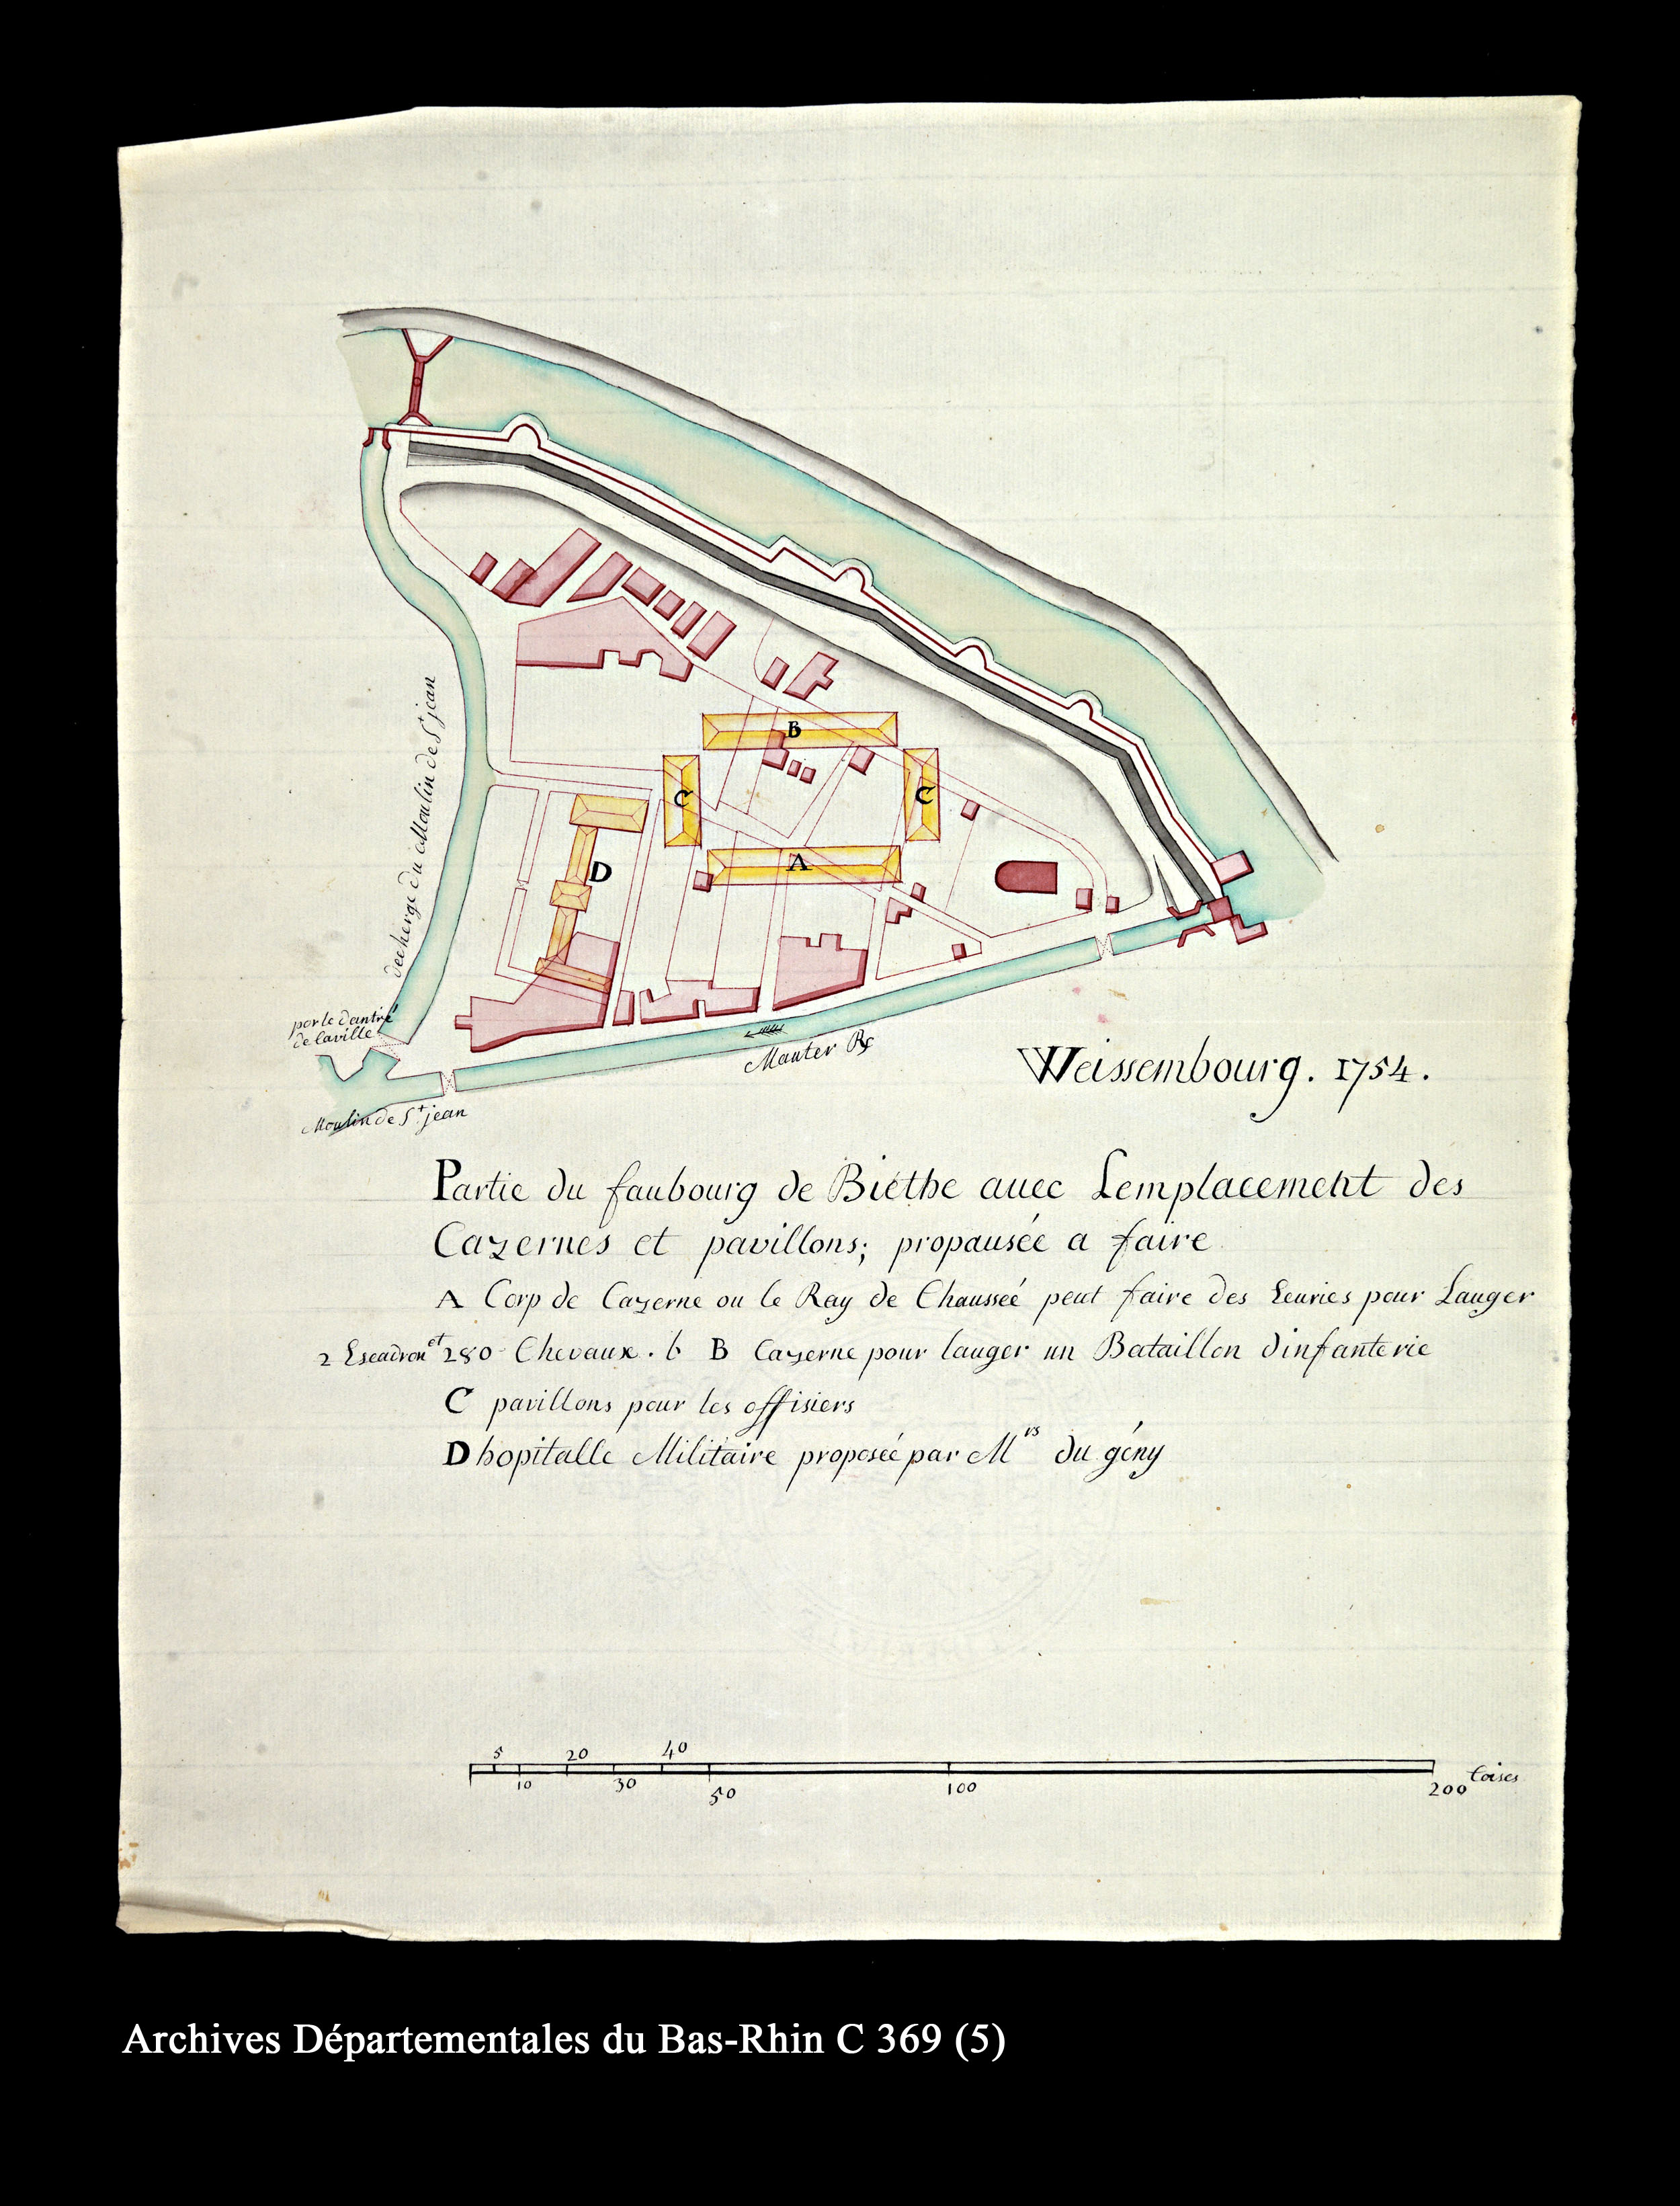 B
C
C
A
D
decherge du Moulin de St jean
porte dantré
de laville
Mauter Rr
Moulin de St jean
Weissembourg. 1754.
Partie du faubourg de Biethe auec Lemplacement des
Cazernes et pavillons; propausée a faire
A Corp de Cazerne ou le Ray de Chausseé peut faire des Ecuries pour Lauger
2 Escadron et 280 Chevaux. b B Cazerne pour lauger un Bataillon dinfanterie
C pavillons pour les offisiers
D hopitalle Militaire proposeé par Mrs du gény
5 20 40
10 30 50 100 200 toises
Archives Départementales du Bas-Rhin C 369 (5)